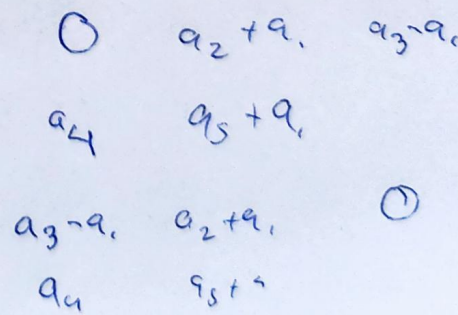 0 a₂ + a₁ a₃ - a₁
a₄ a₅ + a₁
a₃ - a₁ a₂ + a₁ 0
a₄ a₅ +